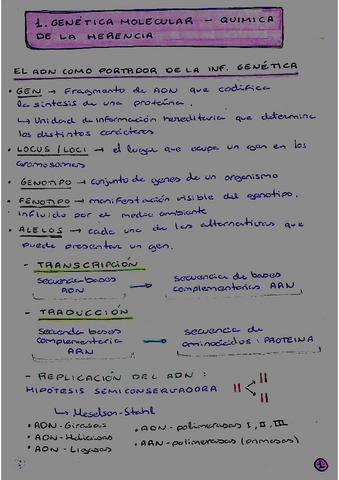 1. GENÉTICA MOLECULAR - QUIMICA
DE LA HERENCIA
EL ADN COMO PORTADOR DE LA INF. GENÉTICA
• GEN → Fragmento de ADN que codifica
la síntesis de una proteína.
↳ Unidad de información hereditaria que determina
los distintos carácteres
• LOCUS / LOCI → el lugar que ocupa un gen en los
cromosomas
• GENOTIPO → conjunto de genes de un organismo
• FENOTIPO → manifestación visible del genotipo,
influido por el medio ambiente
• ALELOS → cada una de las alternativas que
puede presentar un gen.
- TRANSCRIPCIÓN
secuencia bases → secuencia de bases
ADN complementarias ARN
- TRADUCCIÓN
secuencia bases → secuencia de
complementaria aminoácidos : PROTEINA
ARN
- REPLICACIÓN DEL ADN :
HIPÓTESIS SEMICONSERVADORA
↳ Meselson-Stahl
• ADN - Girasas • ADN - polimerasas I, II, III
• ADN - Helicasas • ARN - polimerasas (primasas)
• ADN - Ligasas
1